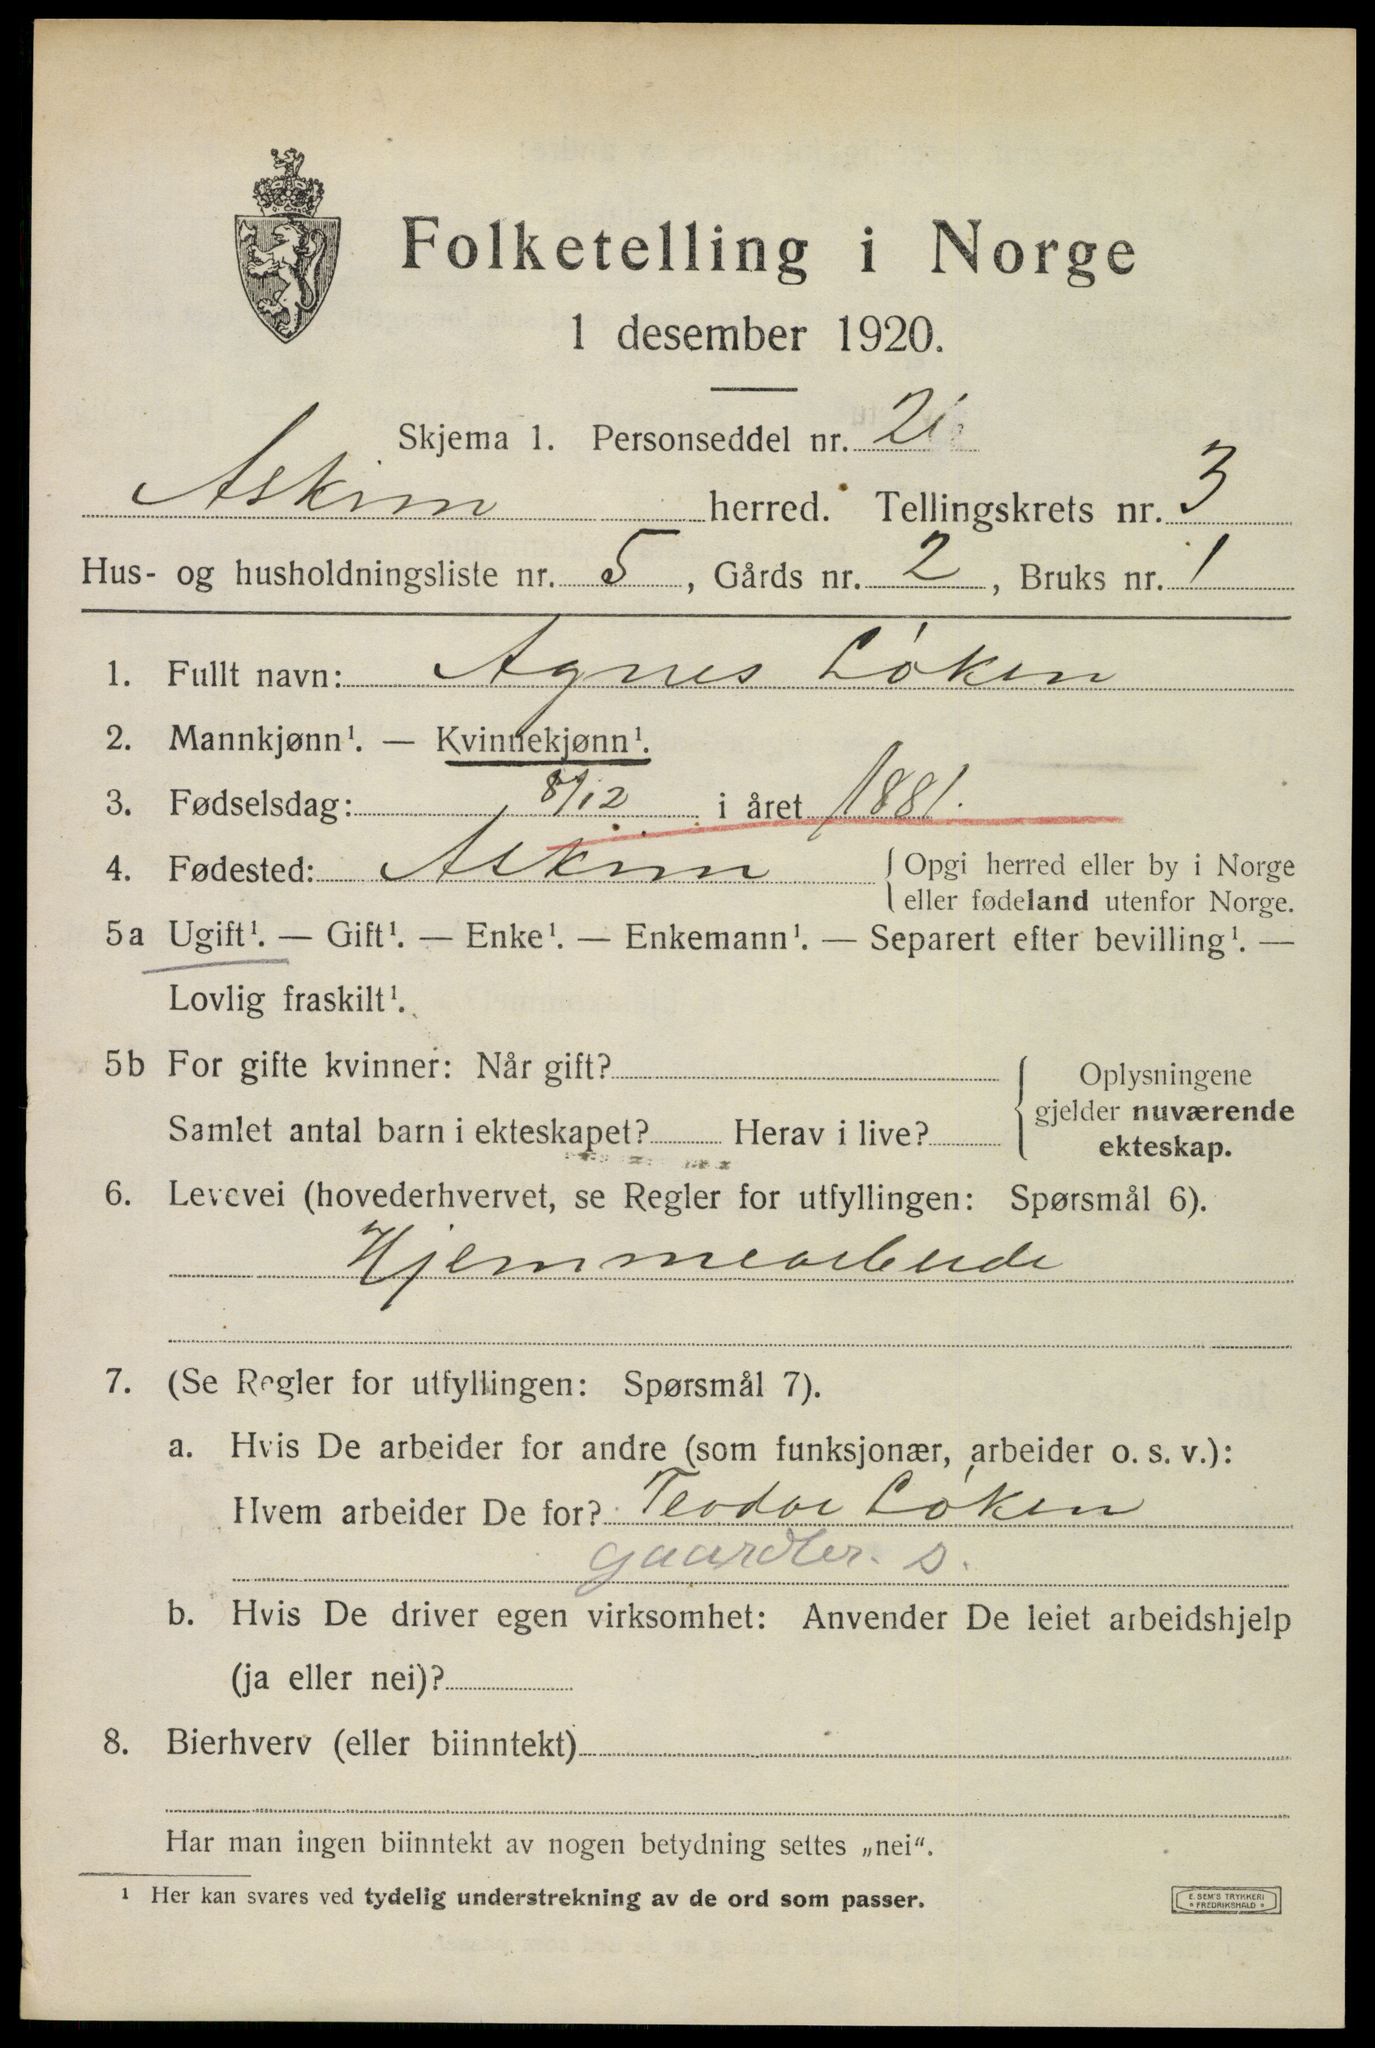 Folketelling i Norge
1 desember 1920.
Skjema 1. Personseddel nr. 21
Askim herred. Tellingskrets nr. 3
Hus- og husholdningsliste nr. 5, Gårds nr. 2, Bruks nr. 1
1. Fullt navn: Agnes Løken
2. Mannkjønn¹. — Kvinnekjønn¹.
3. Fødselsdag: 8/12 i året 1881.
4. Fødested: Askim { Opgi herred eller by i Norge
eller fødeland utenfor Norge.
5a Ugift¹. — Gift¹. — Enke¹. — Enkemann¹. — Separert efter bevilling¹. —
Lovlig fraskilt¹.
5b For gifte kvinner: Når gift?
Samlet antal barn i ekteskapet? Herav i live?
Oplysningene
gjelder nuværende
ekteskap.
6. Levevei (hovederhvervet, se Regler for utfyllingen: Spørsmål 6).
Hjemmearbeide
7. (Se Regler for utfyllingen: Spørsmål 7).
a. Hvis De arbeider for andre (som funksjonær, arbeider o. s. v.):
Hvem arbeider De for? Teodor Løken
gaardbr. s.
b. Hvis De driver egen virksomhet: Anvender De leiet arbeidshjelp
(ja eller nei)?
8. Bierhverv (eller biinntekt)
Har man ingen biinntekt av nogen betydning settes „nei“.
¹ Her kan svares ved tydelig understrekning av de ord som passer.
E. SEM'S TRYKKERI
* FREDRIKSHALD *